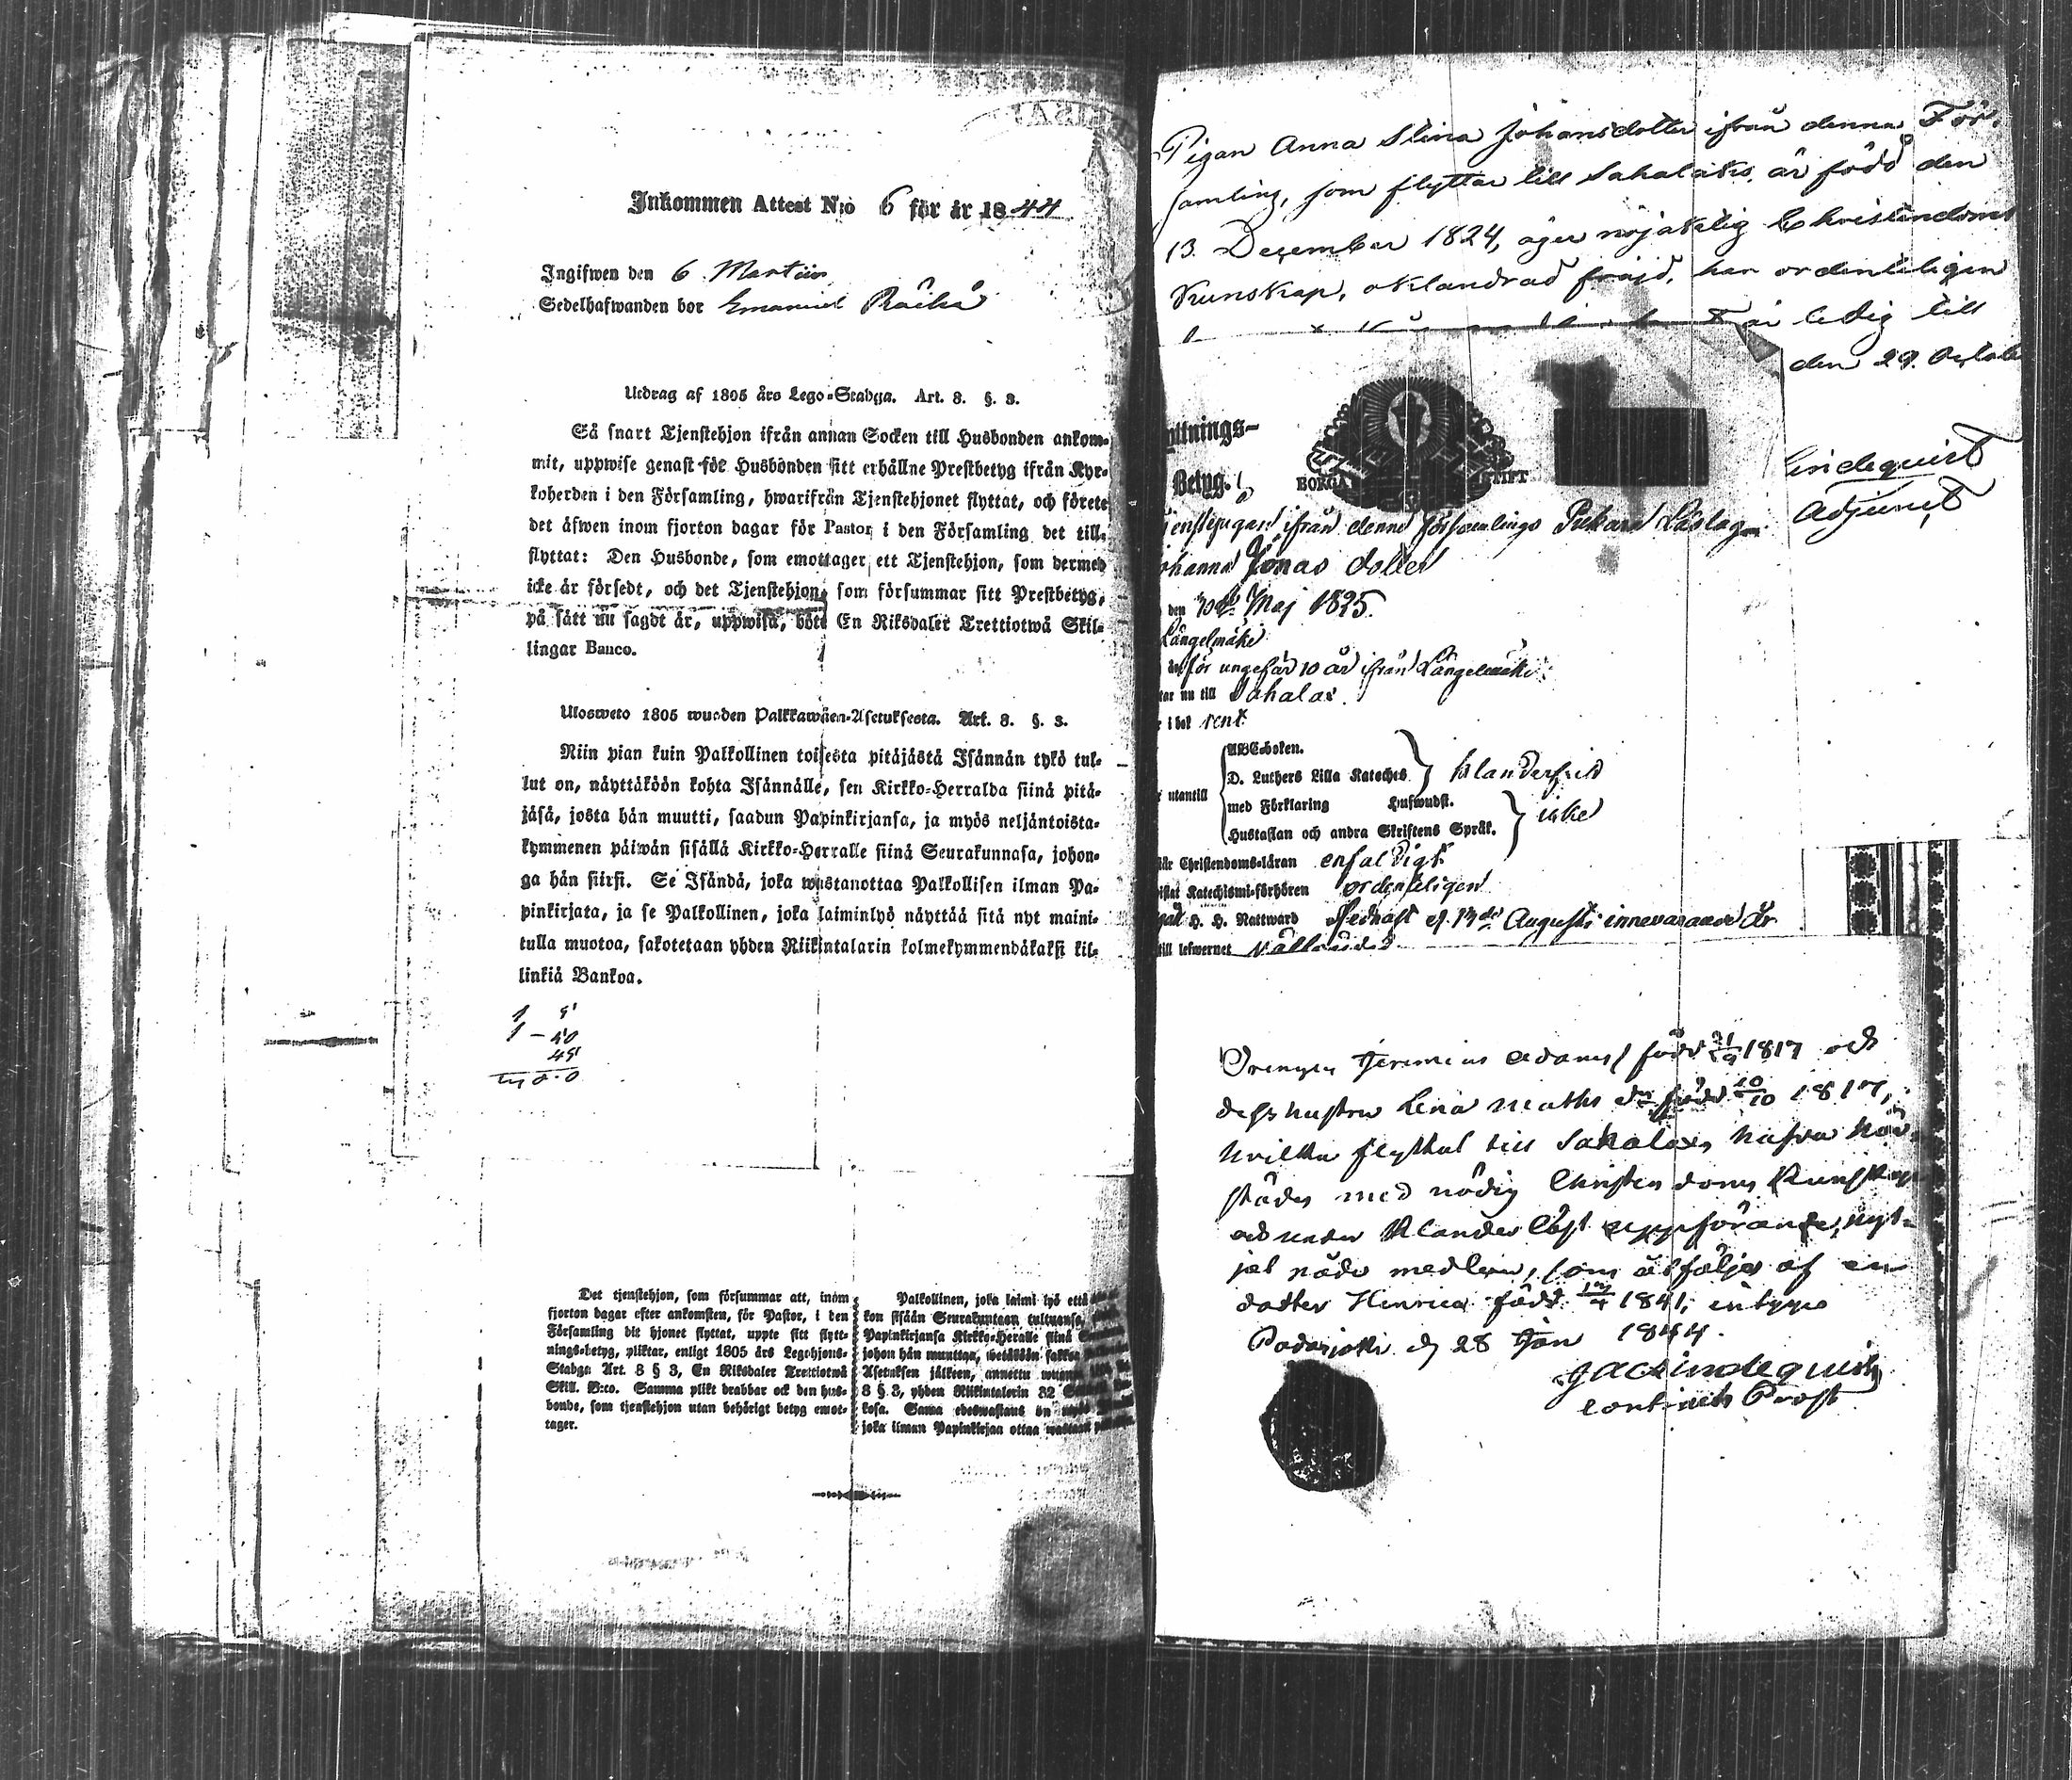 Inkommen Attest N:o 6 för år 1844
Ingifwen den 6 Martii
Sedelhafwanden bor Emanuel
Utdrag af 1805 års Lego-Stadga. Art. 8. §. 3.
Så snart Tjenstehjon ifrån annan Socken till Husbonden ankom-
mit, uppwise genast för Husbonden sitt erhållne Prestbetyg ifrån Kyr-
koherden i den Församling, hwarifrån Tjenstehjonet flyttat, och förete
det äfwen inom fjorton dagar för Pastor i den Församling det till-
flyttat: Den Husbonde, som emottager ett Tjenstehjon, som dermed
icke är försedt, och det Tjenstehjon, som försummar sitt Prestbetyg,
på sätt nu sagdt är, uppwisa, böte En Riksdaler Trettiotwå Skil-
lingar Banco.
Ulosweto 1805 wuoden Palkkawäen-Asetuksesta. Art. 8. §. 3.
Niin pian kuin Palkollinen toisesta pitäjästä Isännän tykö tul-
lut on, näyttäköön kohta Isännälle, sen Kirkko-Herralda siinä pitä-
jäsä, josta hän muutti, saadun Papinkirjansa, ja myös neljäntoista-
kymmenen päiwän sisällä Kirkko-Herralle siinä Seurakunnasa, johon-
ga hän siirsi. Se Isändä, joka wastanottaa Palkollisen ilman Pa-
pinkirjata, ja se Palkollinen, joka laiminlyö näyttää sitä nyt maini-
tulla muotoa, sakotetaan yhden Riikintalarin kolmekymmendäkaksi kil-
linkiä Bankoa.
Det tjenstehjon, som försummar att, inom
fjorton dagar efter ankomsten, för Pastor, i den
Församling dit hjonet flyttat, uppte sitt flytt-
nings-betyg, pliktar, enligt 1805 års Legohjons-
Stadga Art. 8 § 3, En Riksdaler Trettiotwå
Skill. B:co. Samma plikt drabbar ock den hus-
bonde, som tjenstehjon utan behörigt betyg emot-
tager.
Palkollinen, joka laimi lyö että
kon sisään Seurakuntaan tultuansa,
Papinkirjansa Kirkko-Heralle siinä
johon hän muuttan,
Asetuksen jälkeen, annettu
8 § 3, yhden Riikintalarin 32
kosa. Sama edeswastaus on myös
joka ilman Papinkirjaa ottaa wastaan
Pigan Anna Stina Johansdotter ifrån denna För-
samling, som flyttar till Sahalaks, är född den
13. December 1824, äger nöjaktelig Christendoms
Kunskap, oklandrad fräjd, har ordenteligen
är ledig till
den 29. October
Lindequist
Adjunct
yttnings-
Betyg.
BORGÅ STIFT
ifrån denne församlings
ohanna Jonas dotter
den Maj 1825.
Längelmäki
för ungefär 10 år ifrån Längelmäki
tar nu till Sahalax
i bok rent
utantill
ABC-boken.
D. Luthers Lilla Kateches
med Förklaring Hufwudst.
Hustaflan och andra Skriftens Språk.
klanderfritt
icke
Christendoms-läran enfaldigt
Katechismi-förhören ordenteligen
H. H. Nattward sednast d. Augusti innevarande år
till lefwernet
Drengen Jeremias Adams född 1817 och
dess hustru Lena Maths dr född 10/10 1817,
hvilka flyttat till Sahalax, hafva här-
städes med nödig Christendoms Kunskap
och under Klanderlöst uppförande, nyt-
jat nåde medlen, som åtföljes af en
dotter Henrica född 1841, intygas
Padasjoki d. 28 Jan 1844.
G A Lindequist
Contracts Prost